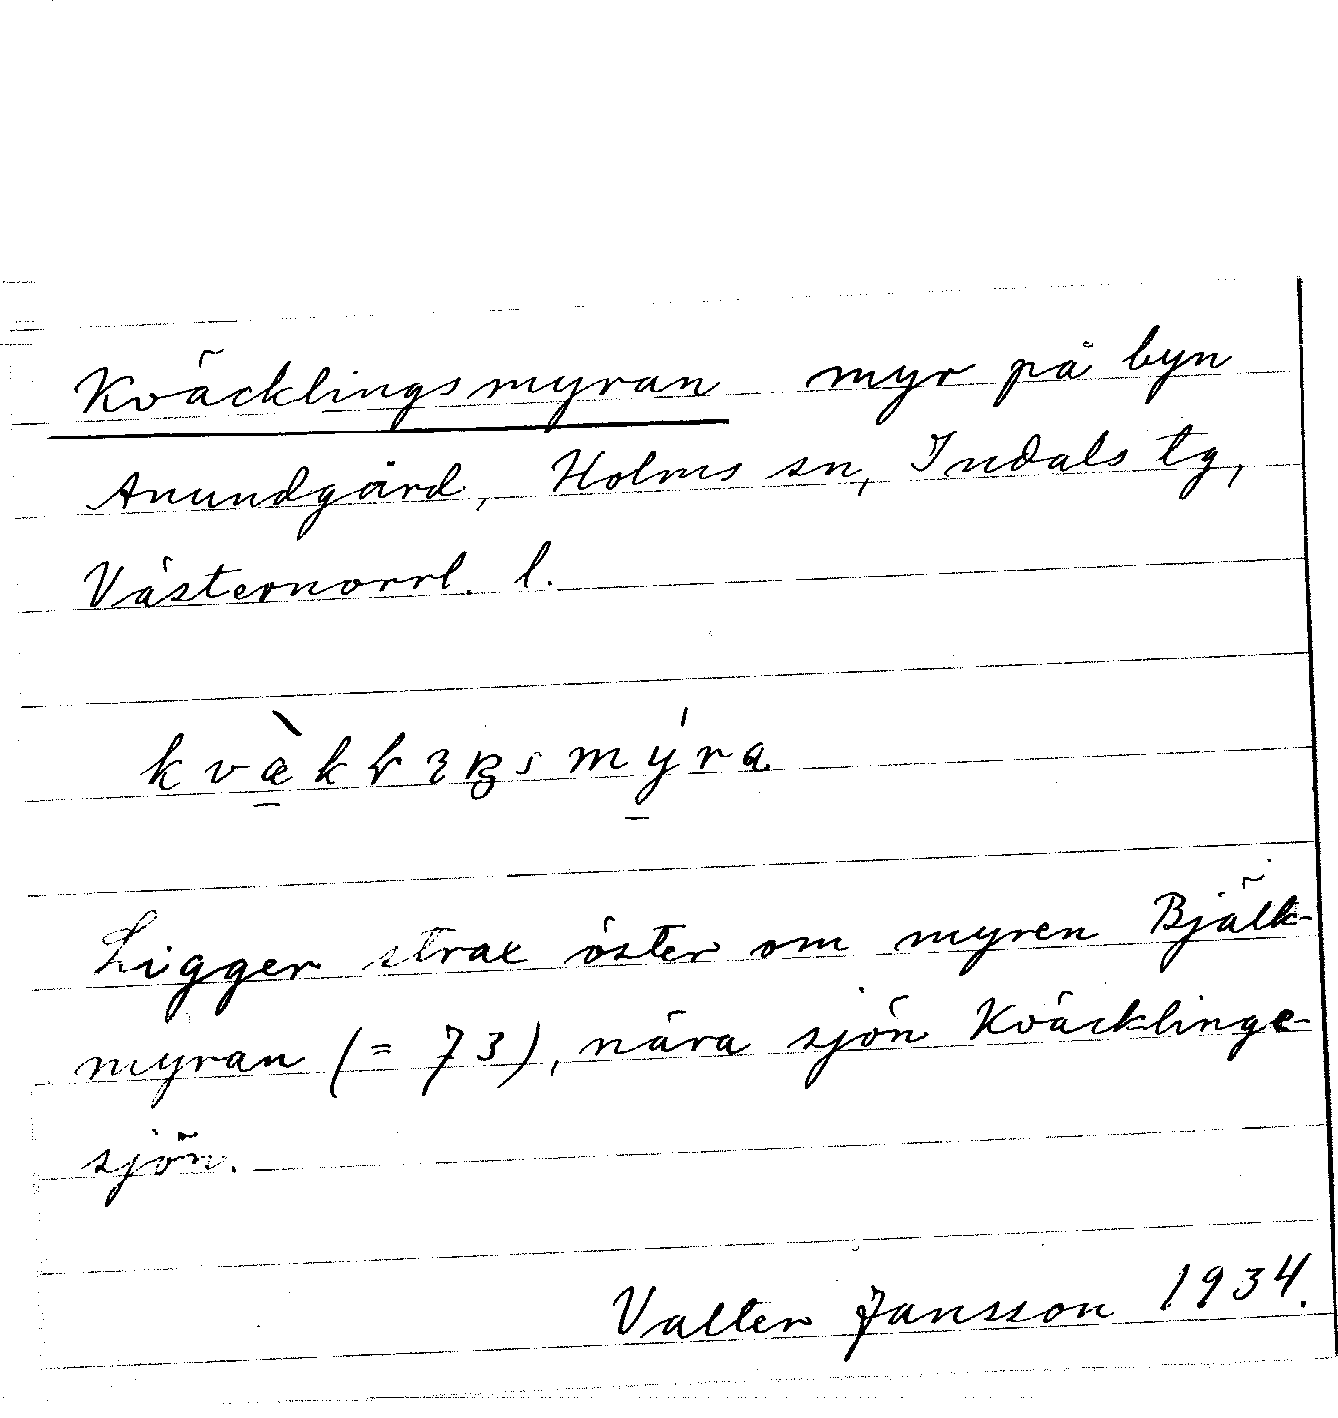 Kväcklingsmyran myr på byn
Anundgård, Holms sn, Indals tg,
Västernorrl. l.
Ligger strax öster om myren Bjälk-
myran (= 73), nära sjön Kväcklinge-
sjön.
Valter Jansson 1934.